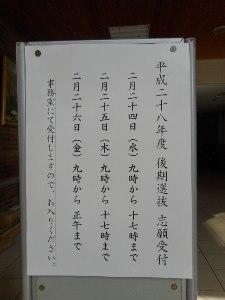 平成二十八年度　後期選抜　志願受付
二月二十四日（水）九時から　十七時まで
二月二十五日（木）九時から　十七時まで
二月二十六日（金）九時から　正午まで
事務室にて受付しますので、お入りください。